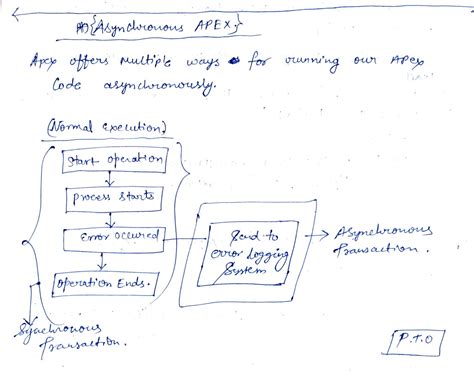 {Asynchronous APEX}
Apex offers multiple ways for running our Apex
Code asynchronously.
(Normal execution)
Start operation
Process starts
Error occured
Operation Ends.
Send to
error logging
System
Asynchronous
Transaction.
Synchronous
Transaction.
P.T.O